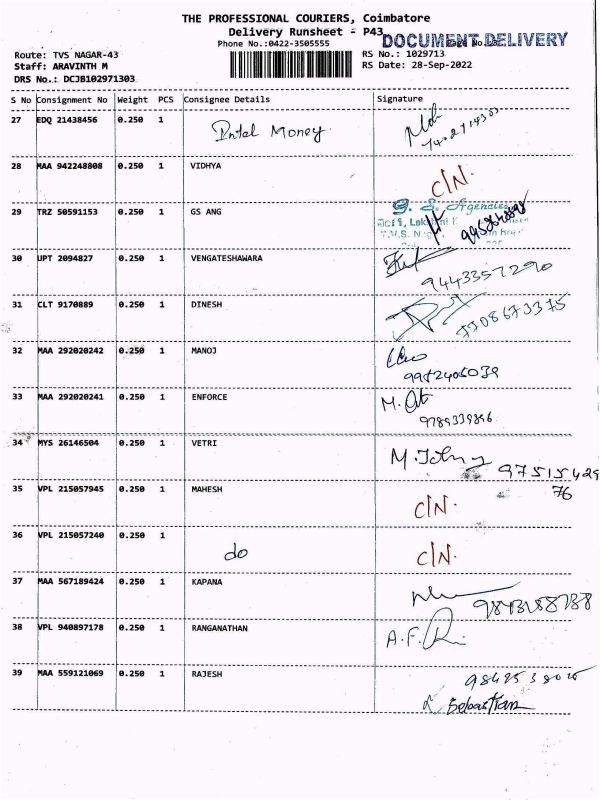 THE PROFESSIONAL COURIERS, Coimbatore
Delivery Runsheet - P43
DOCUMENT DELIVERY
Phone No.:0422-3505555
Route: TVS NAGAR-43
RS No.: 1029713
Staff: ARAVINTH M
RS Date: 28-Sep-2022
DRS No.: DCJB102971303
S No Consignment No Weight PCS Consignee Details Signature
27 EDQ 21438456 0.250 1 Intel Money
28 MAA 942248808 0.250 1 VIDHYA C/N.
29 TRZ 50591153 0.250 1 GS ANG G. S. Agencies
30 UPT 2094827 0.250 1 VENGATESHAWARA
9443357290
31 CLT 9170889 0.250 1 DINESH
7708673375
32 MAA 292020242 0.250 1 MANOJ
9952406039
33 MAA 292020241 0.250 1 ENFORCE
9789339896
34 MYS 26146504 0.250 1 VETRI M. Johny 97515429
76
35 VPL 215057945 0.250 1 MAHESH C/N.
36 VPL 215057240 0.250 1 do C/N.
37 MAA 567189424 0.250 1 KAPANA
38 VPL 940897178 0.250 1 RANGANATHAN A.F.
39 MAA 559121069 0.250 1 RAJESH
Sebastian